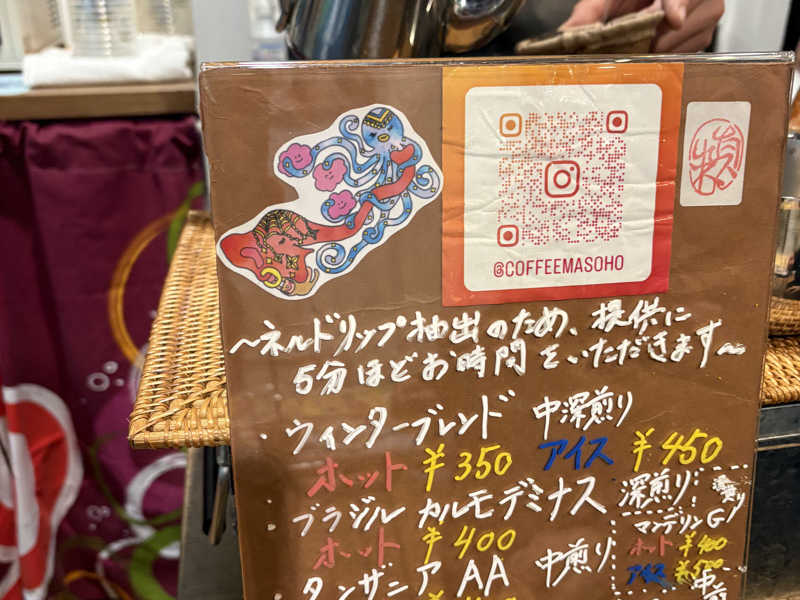 @COFFEEMASOHO
～ネルドリップ抽出のため、提供に
5分ほどお時間をいただきます～
・ウィンターブレンド 中深煎り
ホット ¥350 アイス ¥450
・ブラジル カルモデミナス 深煎り
ホット ¥400
・タンザニア AA 中煎り
深煎り
マンデリンG
ホット ¥400
アイス ¥500